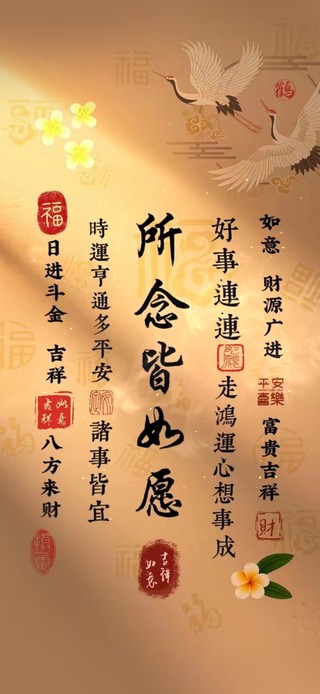 鶴
如意 财源广进
平安喜樂
富贵吉祥
财
好事連連
走鴻運心想事成
所念皆如愿
吉祥如意
時運亨通多平安
諸事皆宜
福
日进斗金 吉祥
如意吉祥
八方来财